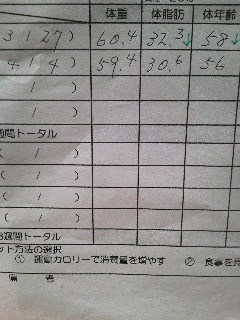 体重 体脂肪 体年齢
3 / 27 ) 60.4 32.3↓ 58↓
4 / 4 ) 59.4 30.6 56
/ )
/ )
週間トータル
( / )
( / )
( / )
( / )
週間トータル
ット方法の選択
① 運動カロリーで消費量を増やす ② 食事を
備 考